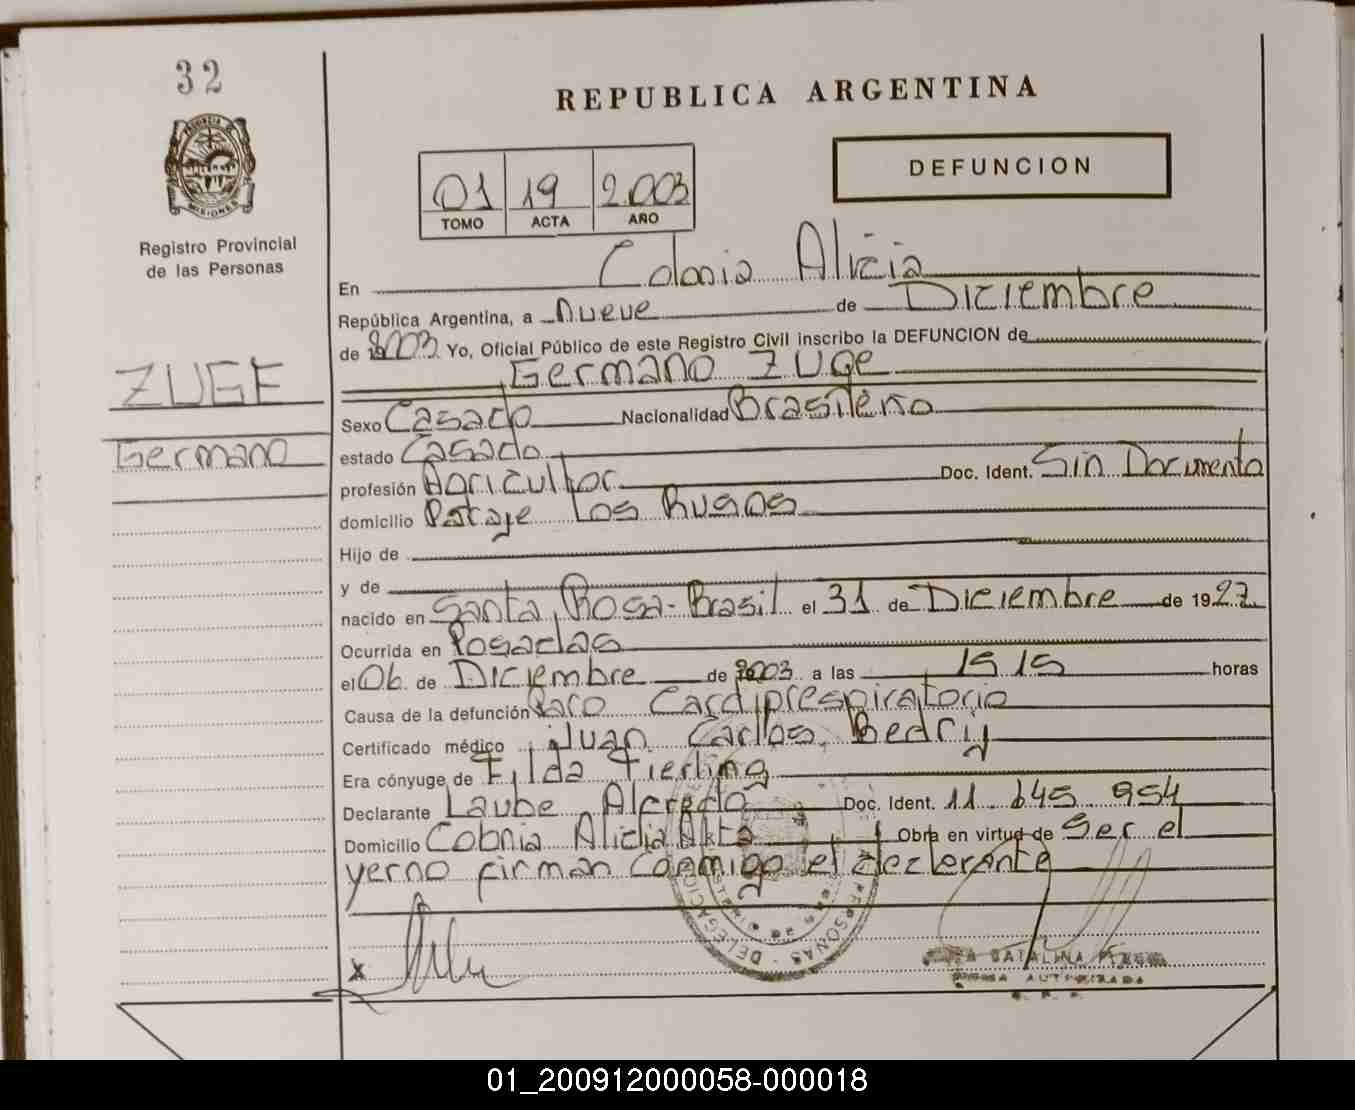 32
PROVINCIA DE
MISIONES
Registro Provincial
de las Personas
ZUGE
Germano
REPUBLICA ARGENTINA
DEFUNCION
01 19 2.003
TOMO ACTA AÑO
En Colonia Alicia
República Argentina, a nueve de Diciembre
de 2003 Yo, Oficial Público de este Registro Civil inscribo la DEFUNCION de
Germano Zuge
Sexo Casado Nacionalidad Brasileño
estado Casado
profesión Agricultor Doc. Ident. Sin Documento
domicilio Paraje Los Rusos
Hijo de
y de
nacido en Santa Rosa-Brasil el 31 de Diciembre de 1927
Ocurrida en Posadas
el 06 de Diciembre de 2003 a las 15 15 horas
Causa de la defunción Paro Cardiprespiratorio
Certificado médico Juan Carlos Bedrij
Era cónyuge de Filda Fierling
Declarante Laube Alfredo Doc. Ident. 11 645 954
Domicilio Colonia Alicia Alta Obra en virtud de Ser el
yerno firman conmigo el declarante
PERSONAS - DELEGACION
x
CATALINA
AUTORIZADA
01_200912000058-000018